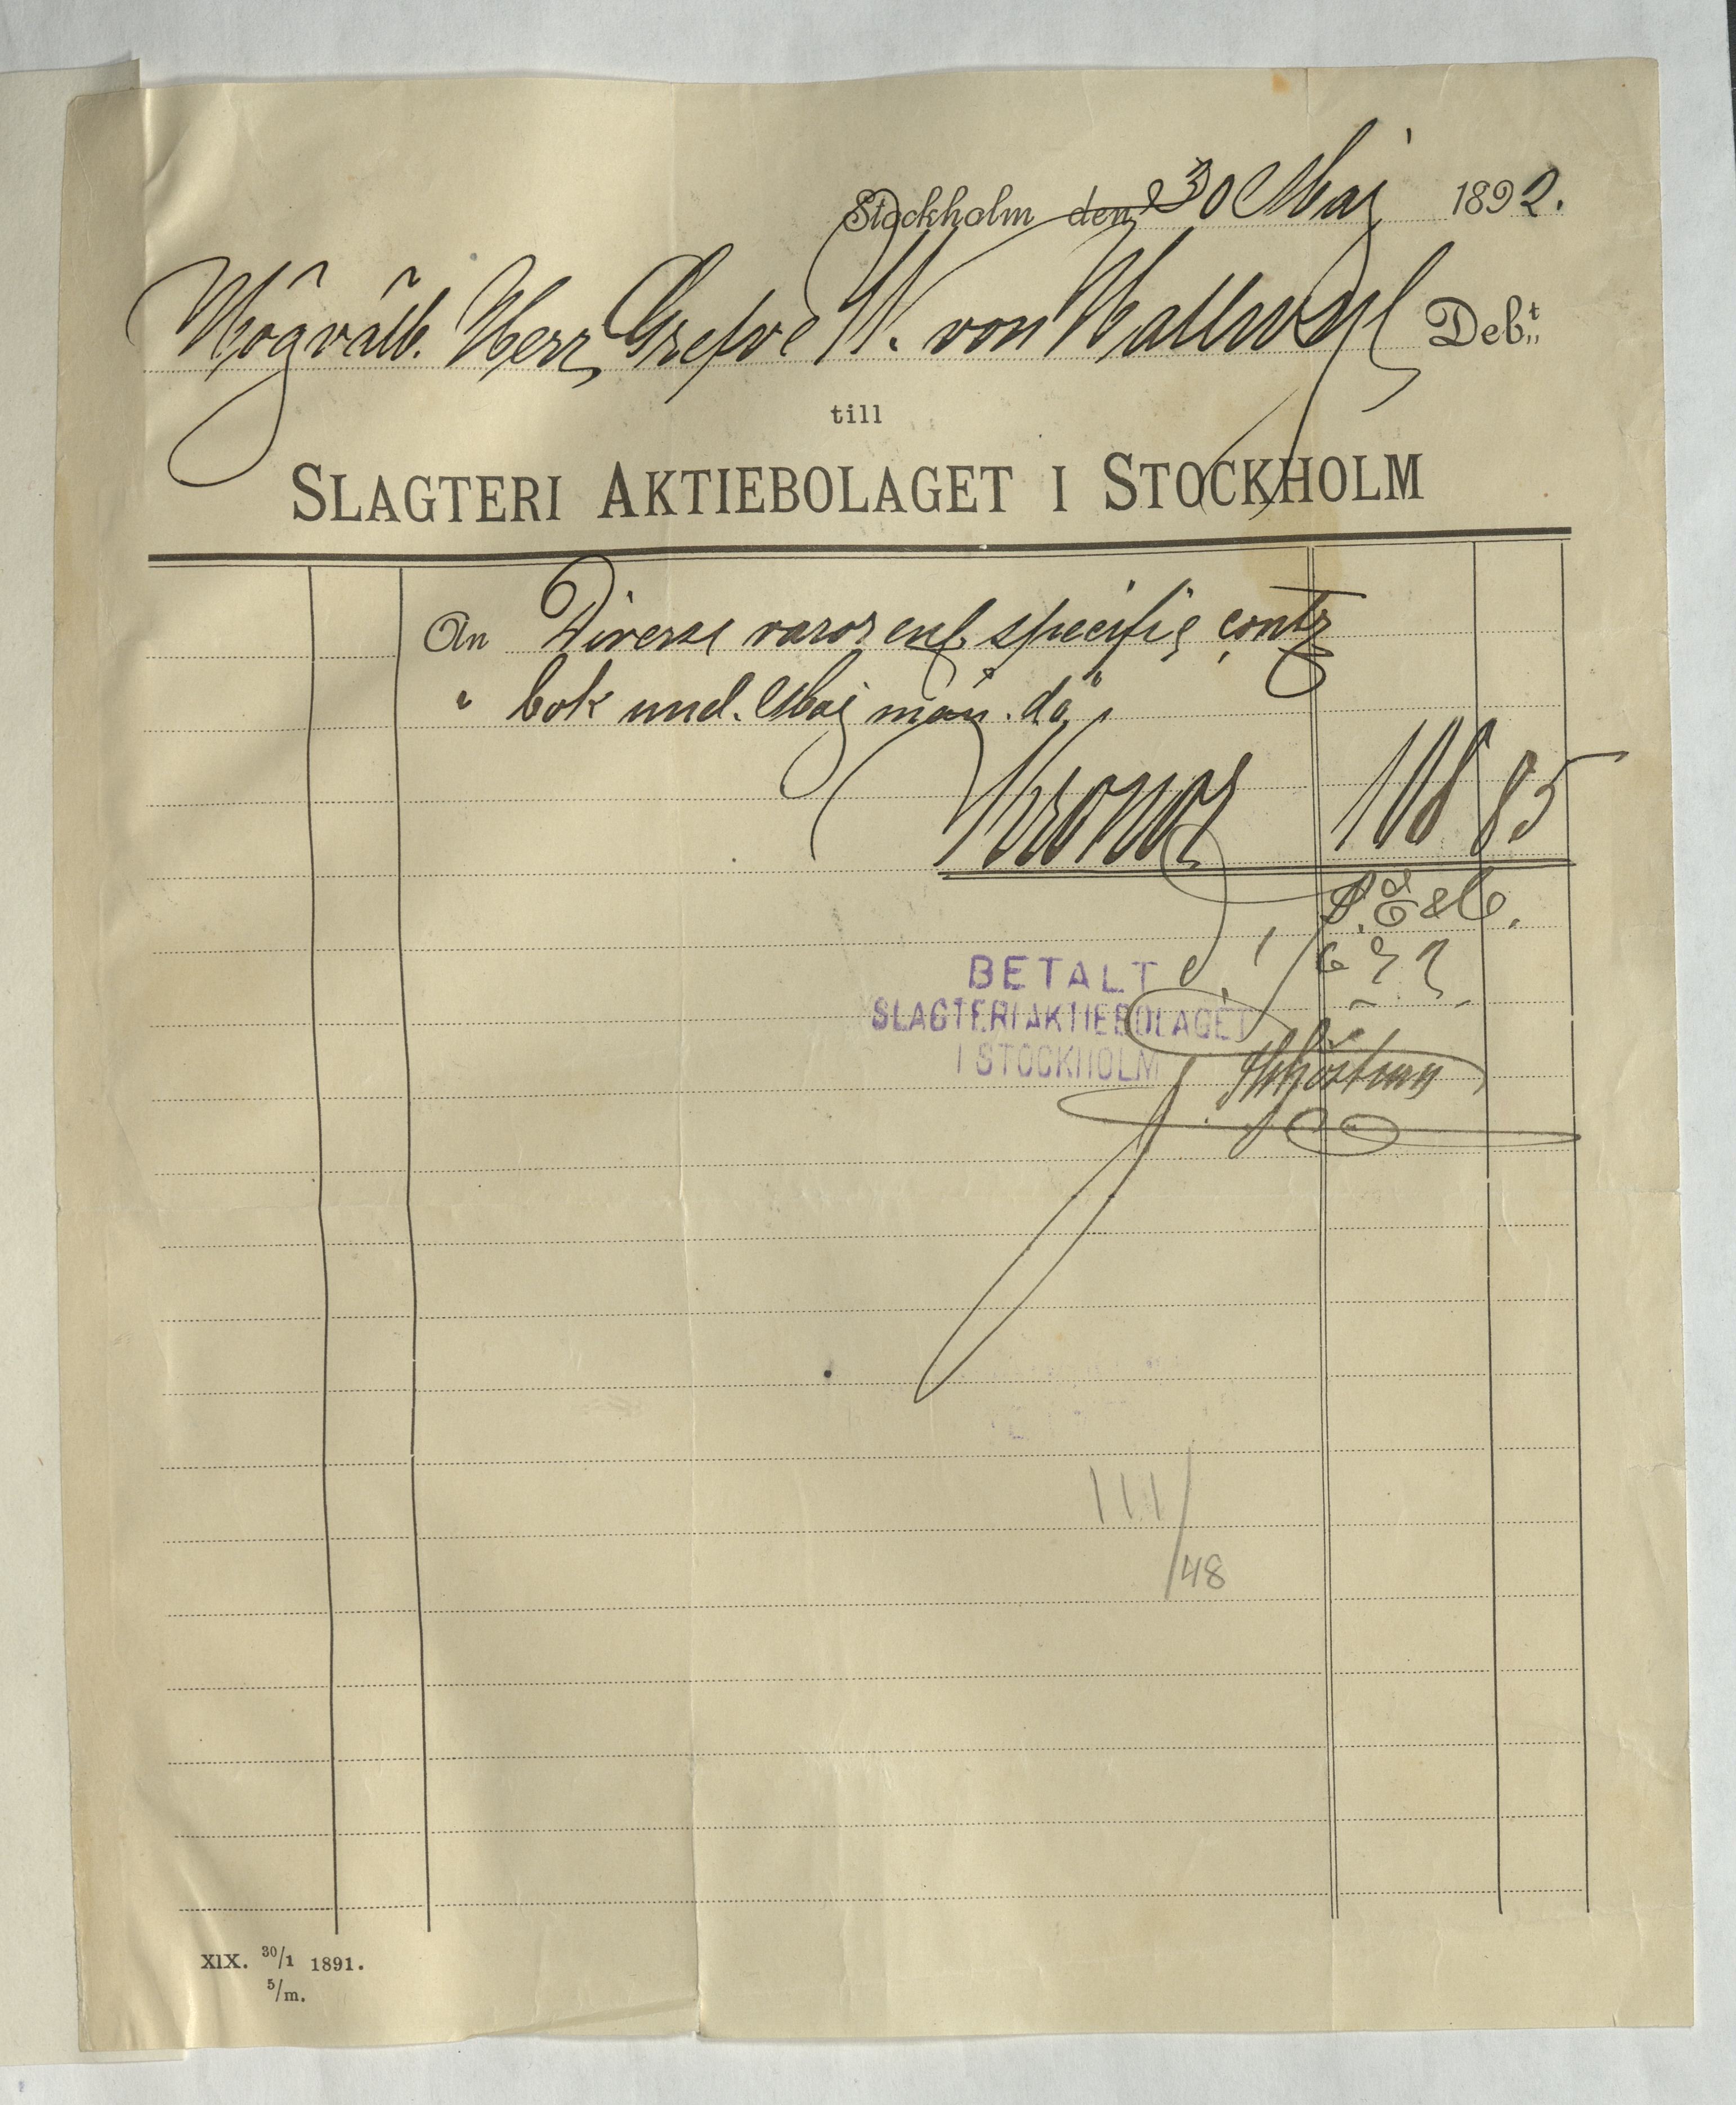 Stockholm den 30 Maj 1892.
Högvälb. Herr Grefve W. von Hallwyl Deb:t
till
SLAGTERI AKTIEBOLAGET I STOCKHOLM
An Diverse varor enl. specific contr
" bok und. Maj mån. då
Kronor 108 85
BETALT
SLAGTERIAKTIEBOLAGET
I STOCKHOLM
111/48
XIX. 30/1 1891.
5/m.